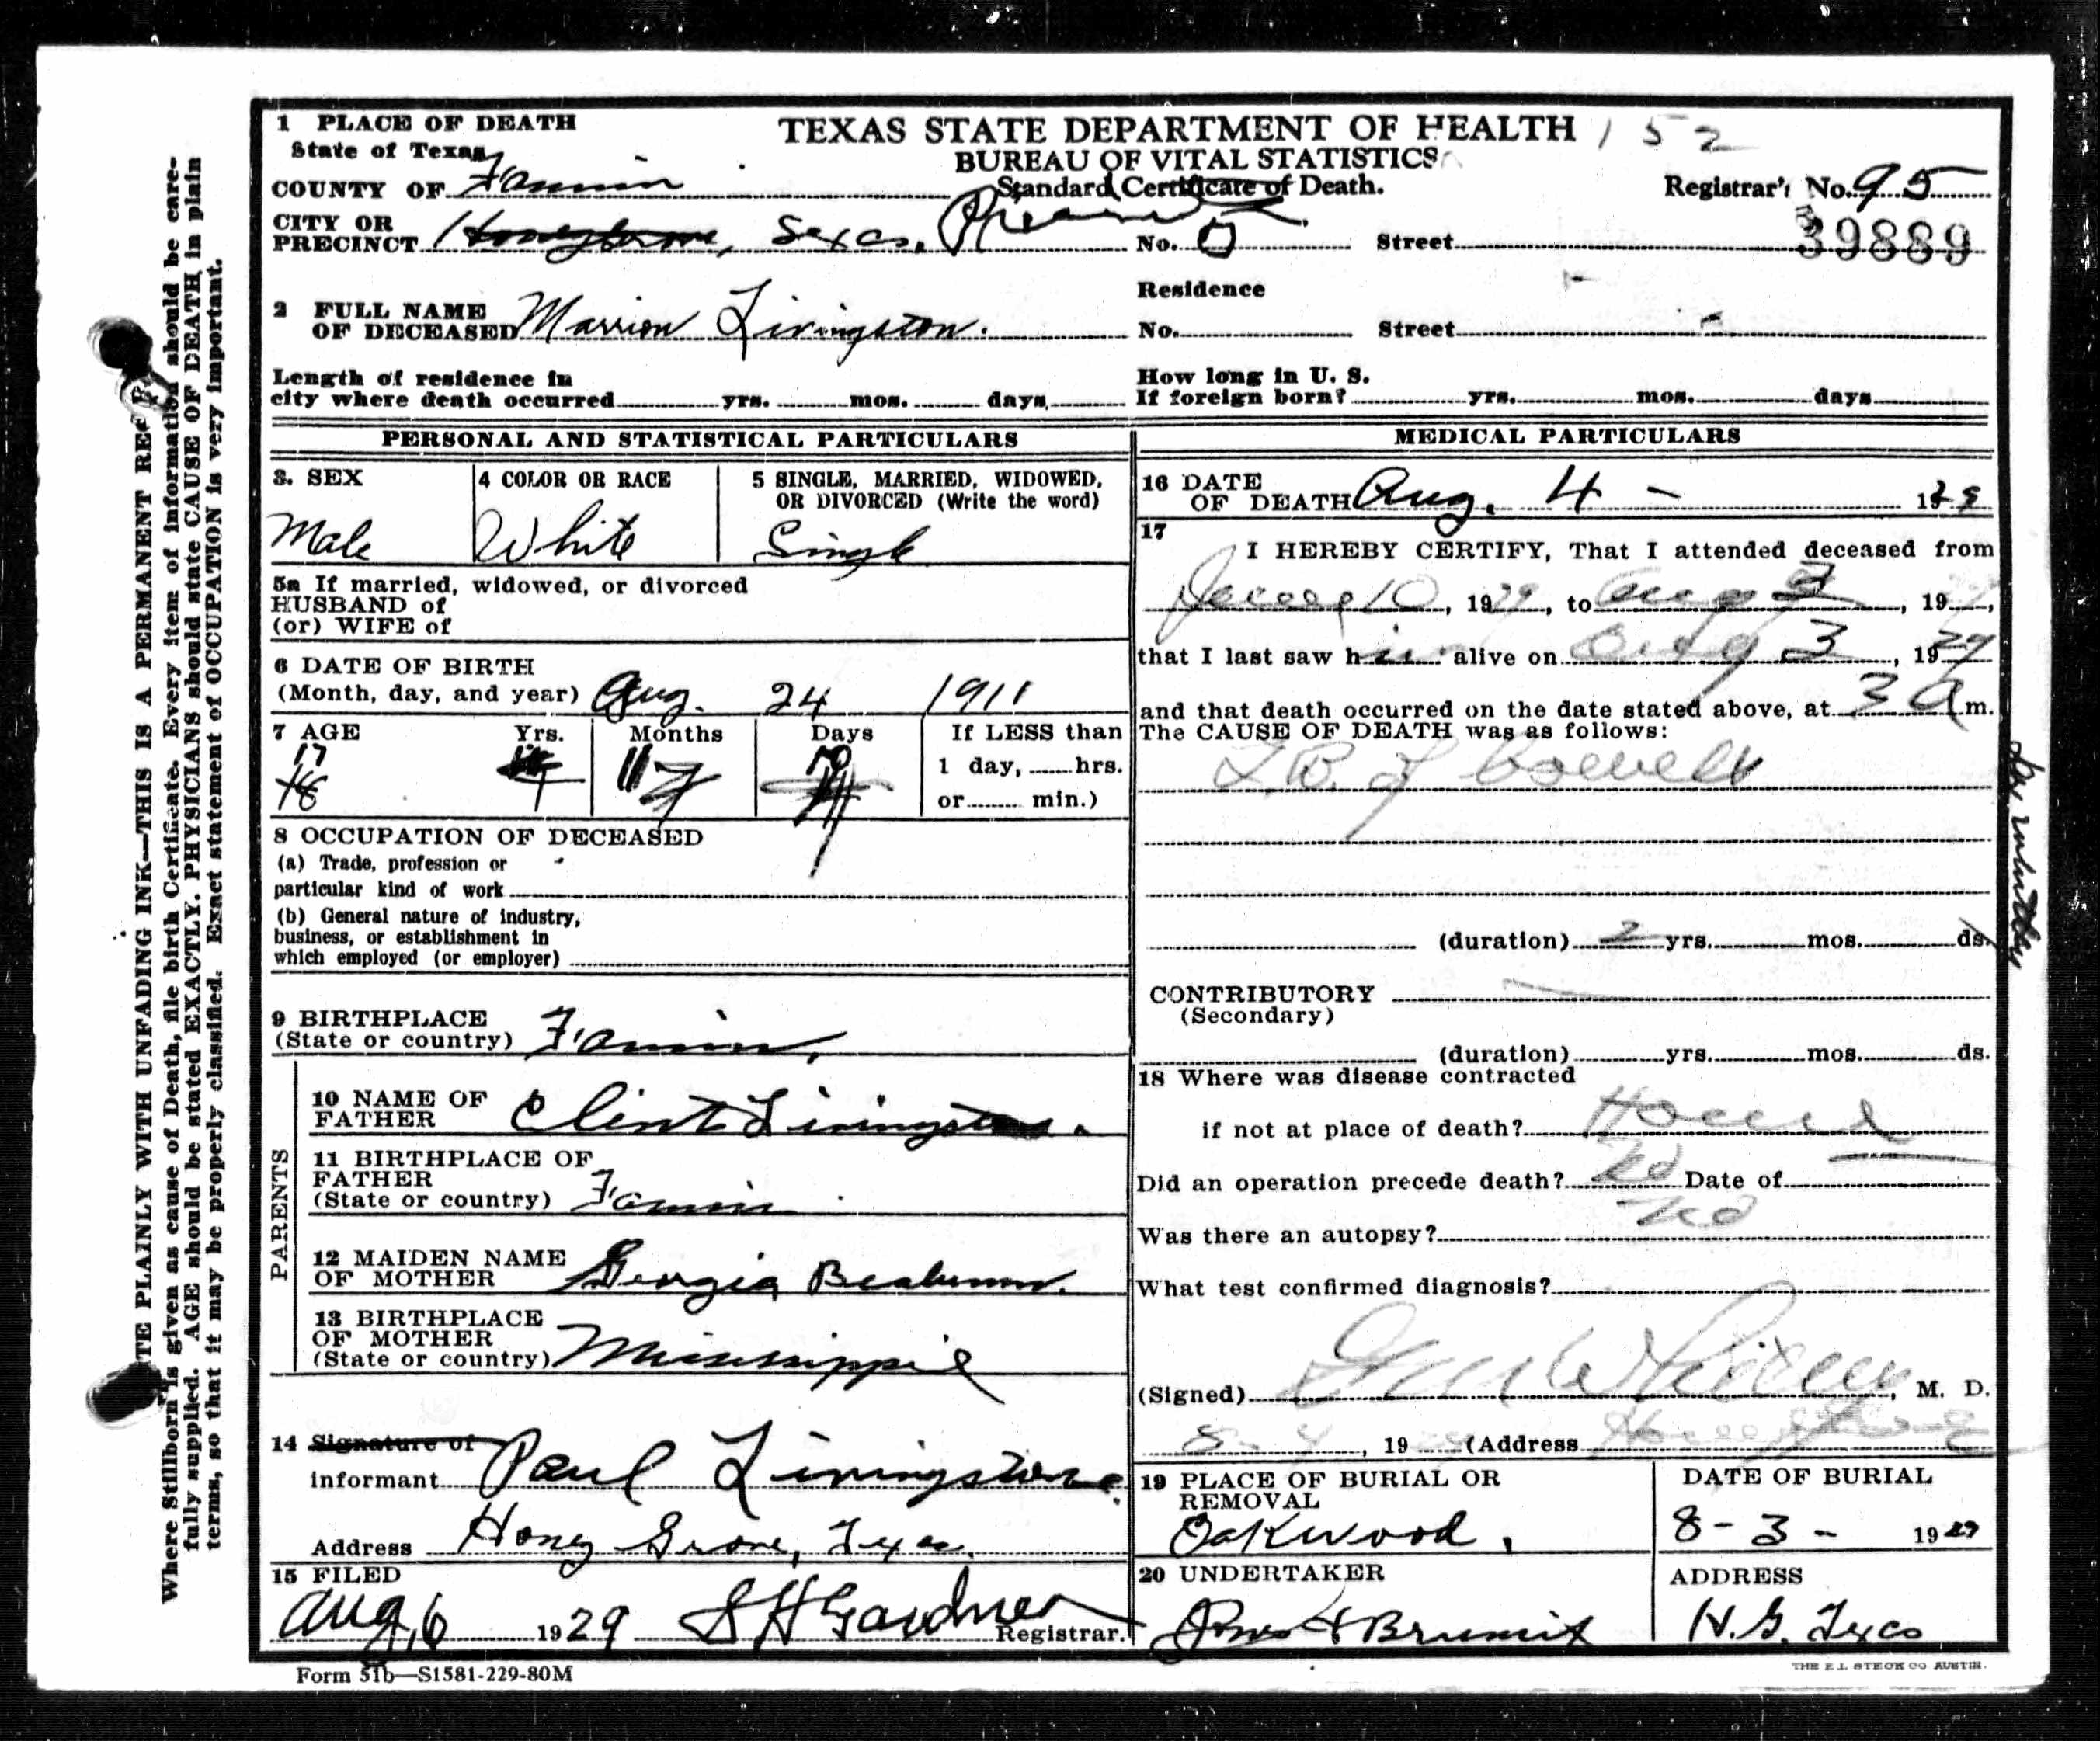 TEXAS STATE DEPARTMENT OF HEALTH 152
BUREAU OF VITAL STATISTICS
Standard Certificate of Death.
1 PLACE OF DEATH
State of Texas
COUNTY OF Fannin
Registrar's No. 95
39889
CITY OR PRECINCT Honey Grove, Texas, Precinct No. 5 Street
2 FULL NAME OF DECEASED Marrion Livingston.
Residence
No. Street
Length of residence in
city where death occurred yrs. mos. days
How long in U. S.
If foreign born? yrs. mos. days
PERSONAL AND STATISTICAL PARTICULARS
3. SEX
Male
4 COLOR OR RACE
White
5 SINGLE, MARRIED, WIDOWED,
OR DIVORCED (Write the word)
Single
5a If married, widowed, or divorced
HUSBAND of
(or) WIFE of
6 DATE OF BIRTH
(Month, day, and year) Aug. 24 1911
7 AGE Yrs. Months Days
17 11 10
18
If LESS than
1 day, hrs.
or min.)
8 OCCUPATION OF DECEASED
(a) Trade, profession or
particular kind of work
(b) General nature of industry,
business, or establishment in
which employed (or employer)
9 BIRTHPLACE
(State or country) Fannin,
PARENTS
10 NAME OF
FATHER Clint Livingston.
11 BIRTHPLACE OF
FATHER
(State or country) Fannin
12 MAIDEN NAME
OF MOTHER Georgia
13 BIRTHPLACE
OF MOTHER
(State or country) Mississippi
14 Signature of
informant Paul Livingston.
Address Honey Grove, Texas.
15 FILED
Aug, 6 1929 S H Gardner Registrar.
MEDICAL PARTICULARS
16 DATE
OF DEATH Aug. 4 - 1929
17
I HEREBY CERTIFY, That I attended deceased from
10, 1929, to Aug 3, 19,
that I last saw him alive on Aug 3, 1929
and that death occurred on the date stated above, at 3 A m.
The CAUSE OF DEATH was as follows:
T.B. of
(duration) 2 yrs. mos. ds.
CONTRIBUTORY
(Secondary)
(duration) yrs. mos. ds.
18 Where was disease contracted
if not at place of death? Home
Did an operation precede death? No Date of
Was there an autopsy? No
What test confirmed diagnosis?
(Signed) , M. D.
8-4, 19 (Address Honey Grove
19 PLACE OF BURIAL OR
REMOVAL
Oakwood.
DATE OF BURIAL
8-3- 1929
20 UNDERTAKER
& Brumit
ADDRESS
H. G. Texas
Form 51b—S1581-229-80M
THE E.L. STECK CO AUSTIN.
TE PLAINLY WITH UNFADING INK—THIS IS A PERMANENT REC
Where Stillborn is given as cause of Death, file birth Certificate. Every item of information should be care-
fully supplied. AGE should be stated EXACTLY. PHYSICIANS should state CAUSE OF DEATH in plain
terms, so that it may be properly classified. Exact statement of OCCUPATION is very important.